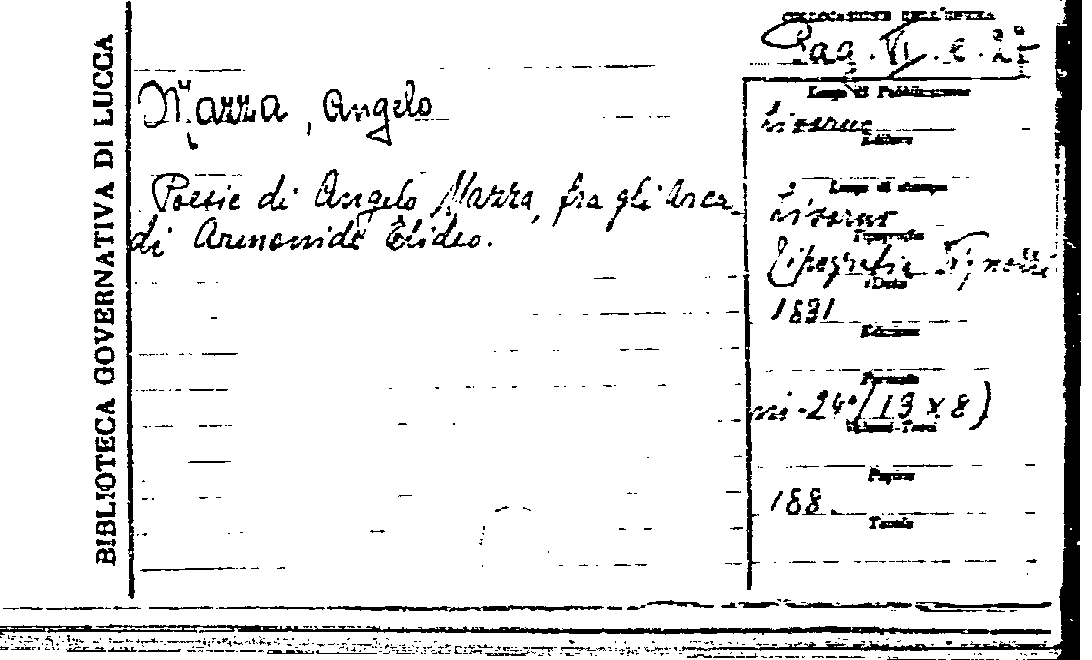 BIBLIOTECA GOVERNATIVA DI LUCCA
COLLOCAZIONE DELL'OPERA
Pag. VI. e. 27
Mazza, Angelo
Poesie di Angelo Mazza, fra gli Arca-
di Armonide Elideo.
Luogo di Pubblicazione
Livorno
Editore
Luogo di stampa
Livorno
Tipografia
Tipografia Vignozzi
Data
1831
Edizione
Formato
in-24°(13 x 8)
Volumi-Tomi
Pagine
188.
Tavole